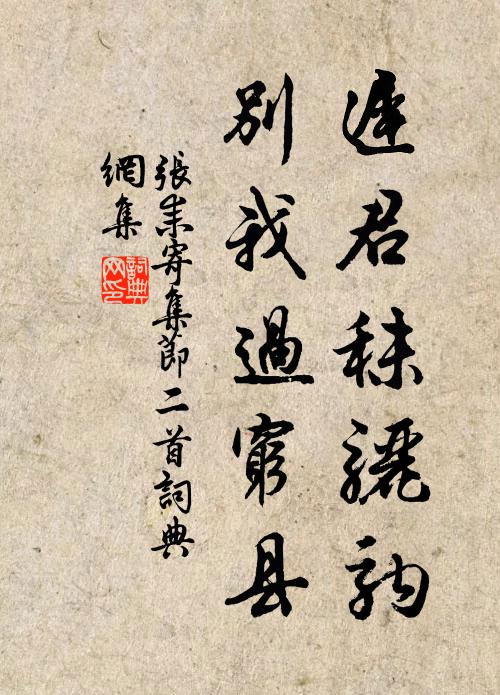 遲君秣驪駒
別我過窮县
張耒寄集節二首詞典
網集
詞典
网印